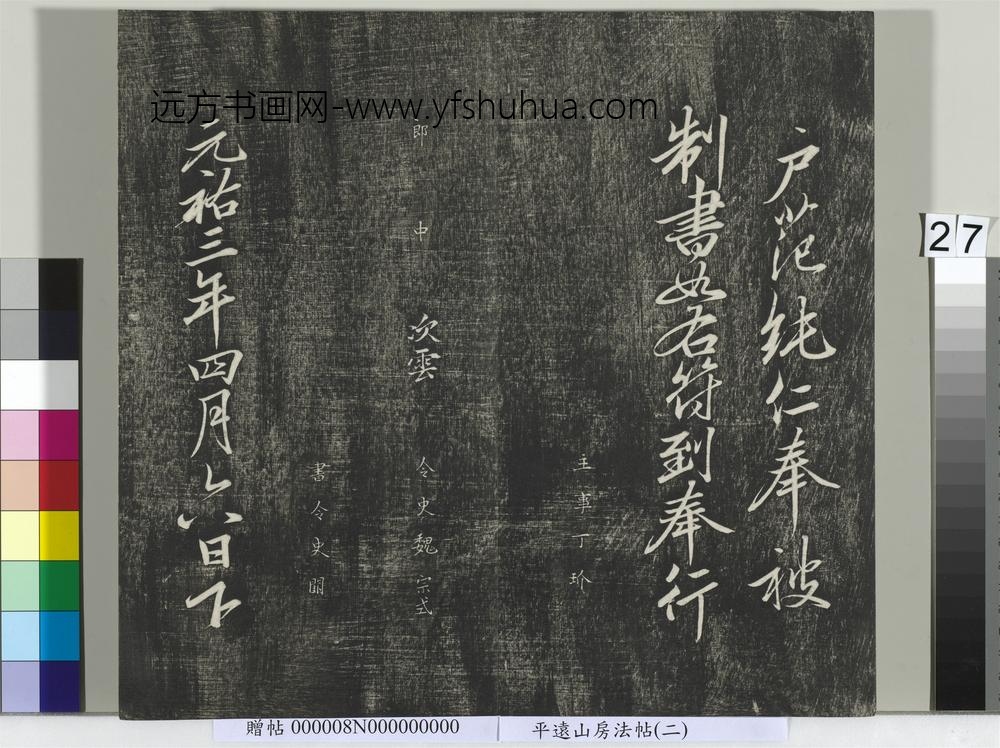 远方书画网-www.yfshuhua.com
户范纯仁奉被
制書如右符到奉行
主事丁玠
郎中 次雲 令史魏宗式
書令史
元祐三年四月六日下
27
贈帖 000008N000000000
平遠山房法帖(二)